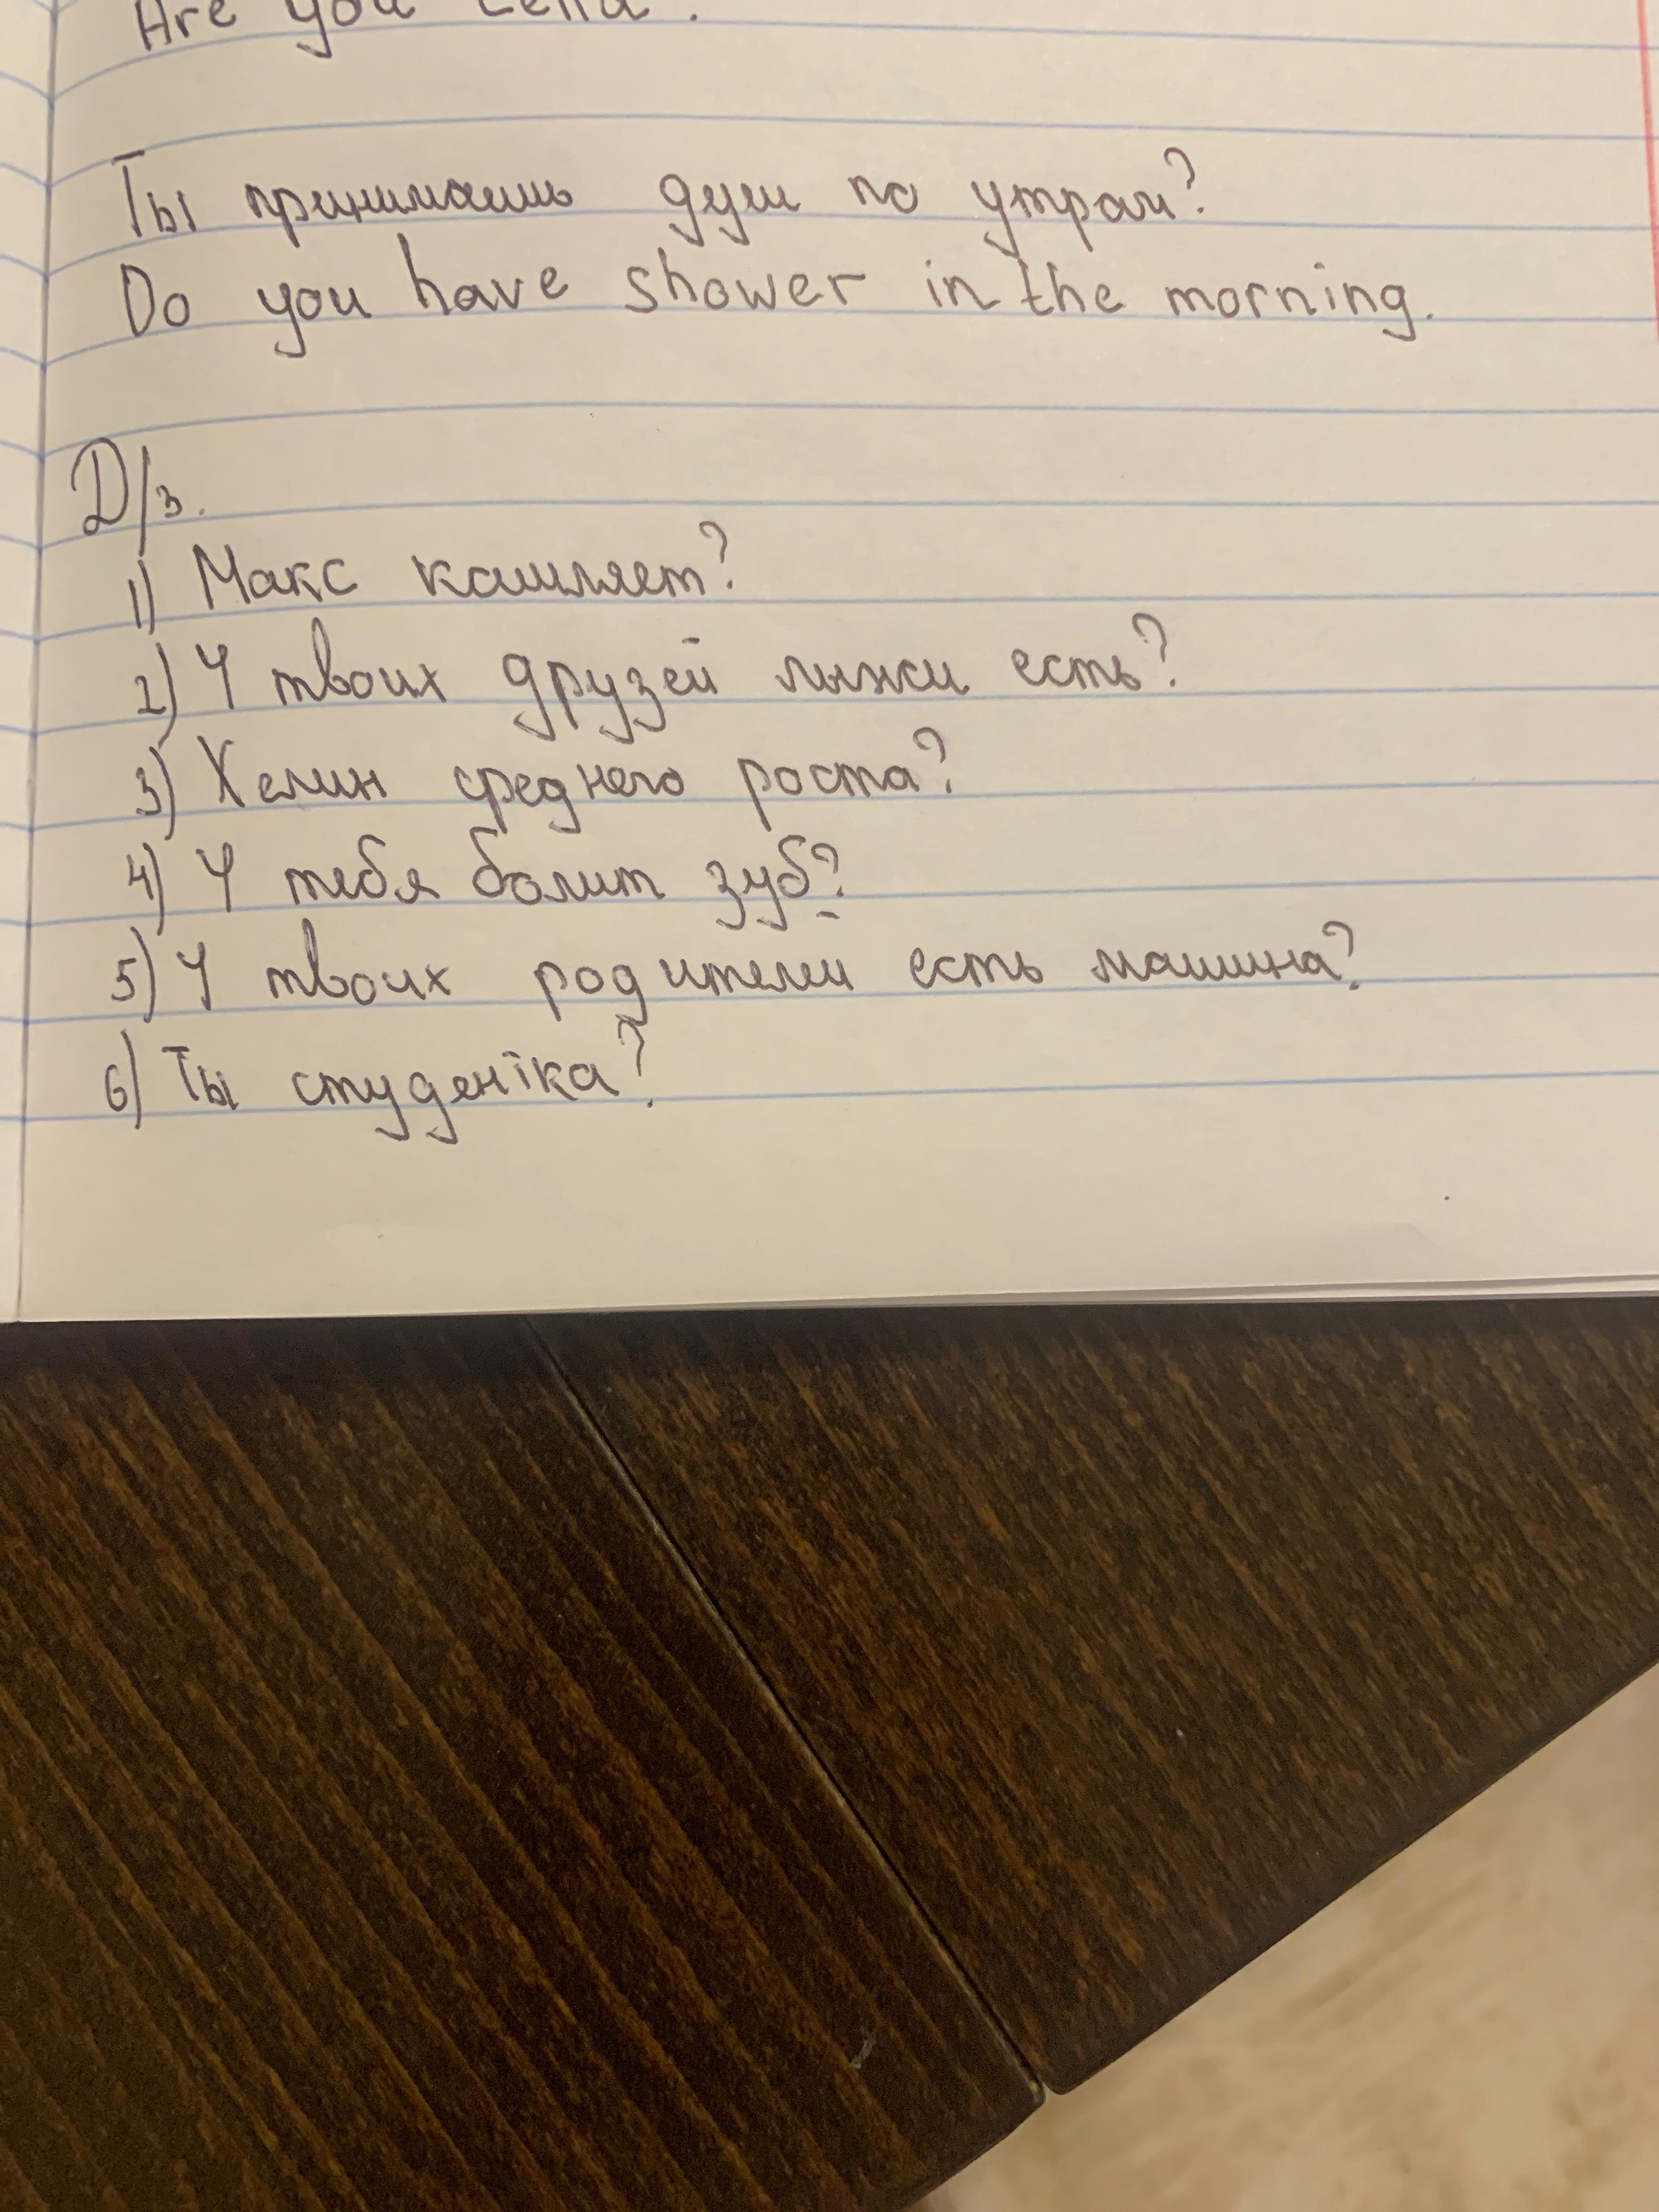 Are you Lena.
Ты принимаешь душ по утрам?
Do you have shower in the morning.
Д/з.
1) Макс кашляет?
2) У твоих друзей лыжи есть?
3) Хелин среднего роста?
4) У тебя болит зуб?
5) У твоих родителей есть машина?
6) Ты студентка?